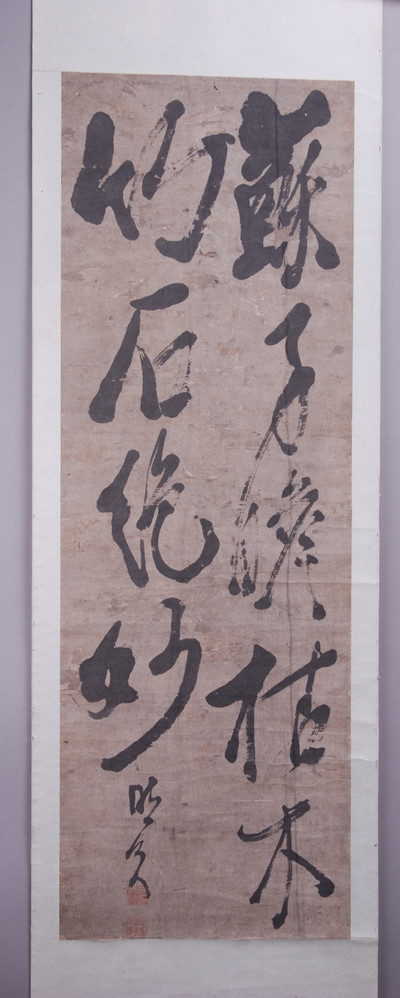 蘇子瞻枯木
竹石絶妙